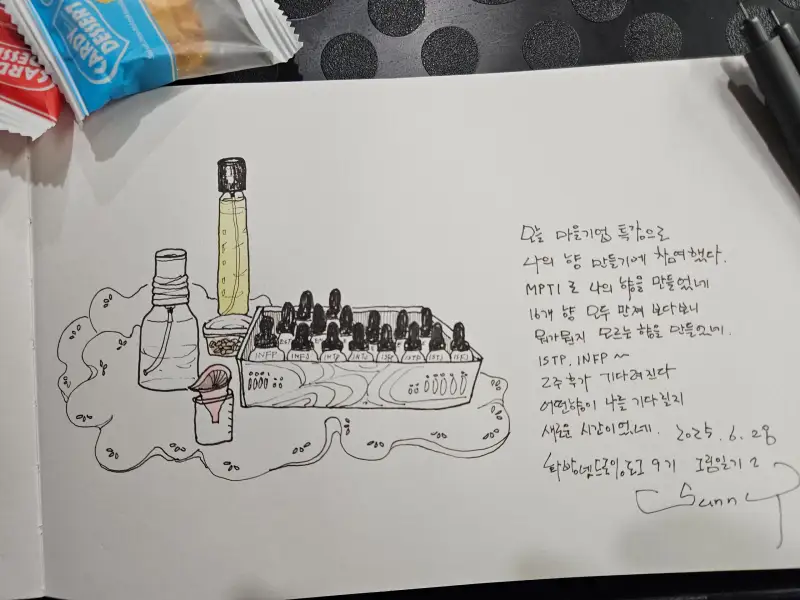 CARDY
DESSERT
오늘 마을기업 특강으로
나의 향 만들기에 참여했다.
MPTI 로 나의 향을 만들었네
16개 향 모두 만져 보다보니
뭐가뭔지 모르는 향을 만들었네.
ISTP, INFP ~
2주 후가 기다려진다
어떤향이 나를 기다릴지
새로운 시간이었네. 2025. 6. 28
9기 그림일기 2
Sunny
INFP